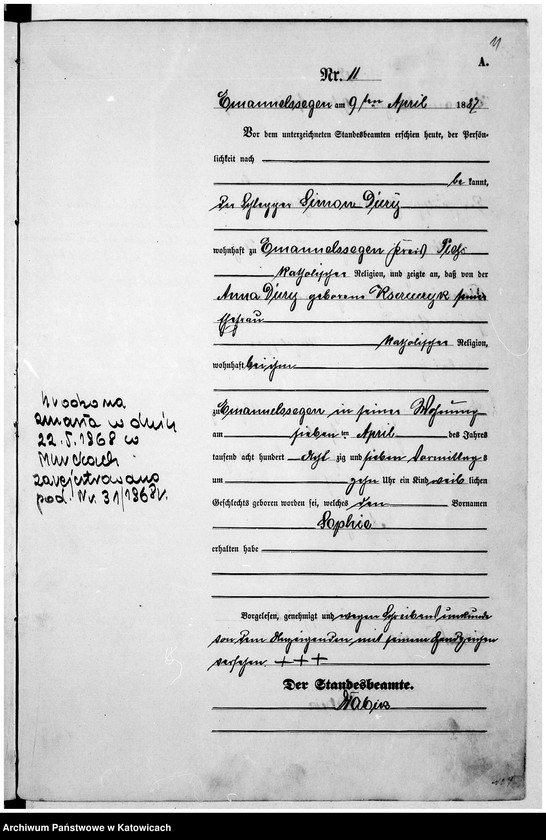 11
A.
Nr. 11
Emanuelssegen am 9ten April 1887
Vor dem unterzeichneten Standesbeamten erschien heute, der Persön-
lichkeit nach
be kannt,
Der Simon Dürÿ
wohnhaft zu Emanuelssegen Kreis Pleß
Katholischer Religion, und zeigte an, daß von der
Anna Dürÿ geborene seiner
Ehefrau
Katholischer Religion,
wohnhaft bei ihm
zu Emanuelssegen in seiner Wohnung
am sieben ten April des Jahres
tausend acht hundert Acht zig und sieben Vormittags
um zehn Uhr ein Kind weib lichen
Geschlechts geboren worden sei, welches den Vornamen
Sophie
erhalten habe
Vorgelesen, genehmigt und wegen Schreibensunkunde
von dem Anzeigenden mit seinem Handzeichen
versehen. +++
Der Standesbeamte.
Urodzona
zmarła w dniu
22.5.1968 w
Murckach
zarejestrowano
pod. Nr. 31/1968r.
Archiwum Państwowe w Katowicach